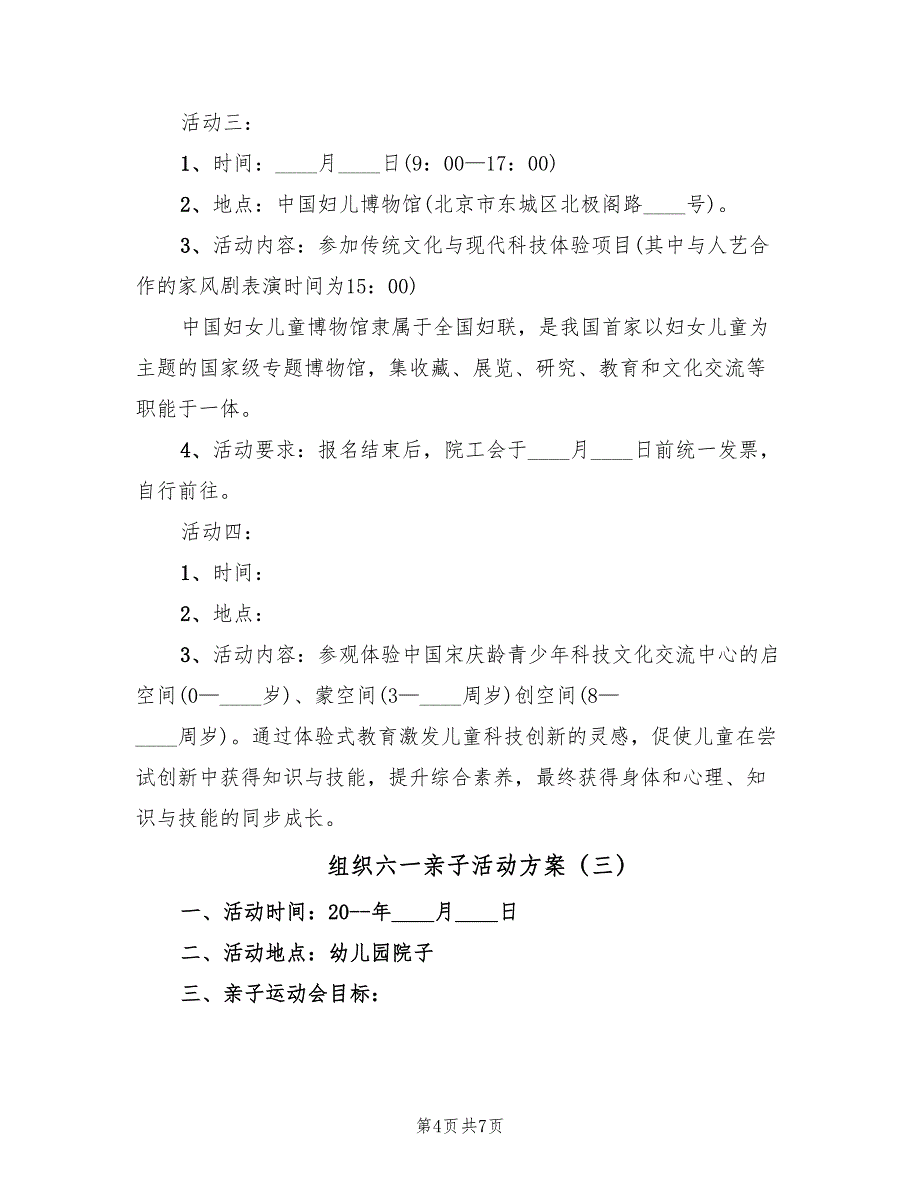 活动三：
1、时间：____月____日(9：00—17：00)
2、地点：中国妇儿博物馆(北京市东城区北极阁路____号)。
3、活动内容：参加传统文化与现代科技体验项目(其中与人艺合
作的家风剧表演时间为15：00)
中国妇女儿童博物馆隶属于全国妇联，是我国首家以妇女儿童为
主题的国家级专题博物馆，集收藏、展览、研究、教育和文化交流等
职能于一体。
4、活动要求：报名结束后，院工会于____月____日前统一发票，
自行前往。
活动四：
1、时间：
2、地点：
3、活动内容：参观体验中国宋庆龄青少年科技文化交流中心的启
空间(0—____岁)、蒙空间(3—____周岁)创空间(8—
____周岁)。通过体验式教育激发儿童科技创新的灵感，促使儿童在尝
试创新中获得知识与技能，提升综合素养，最终获得身体和心理、知
识与技能的同步成长。
组织六一亲子活动方案（三）
一、活动时间：20--年____月____日
二、活动地点：幼儿园院子
三、亲子运动会目标：
第4页共7页